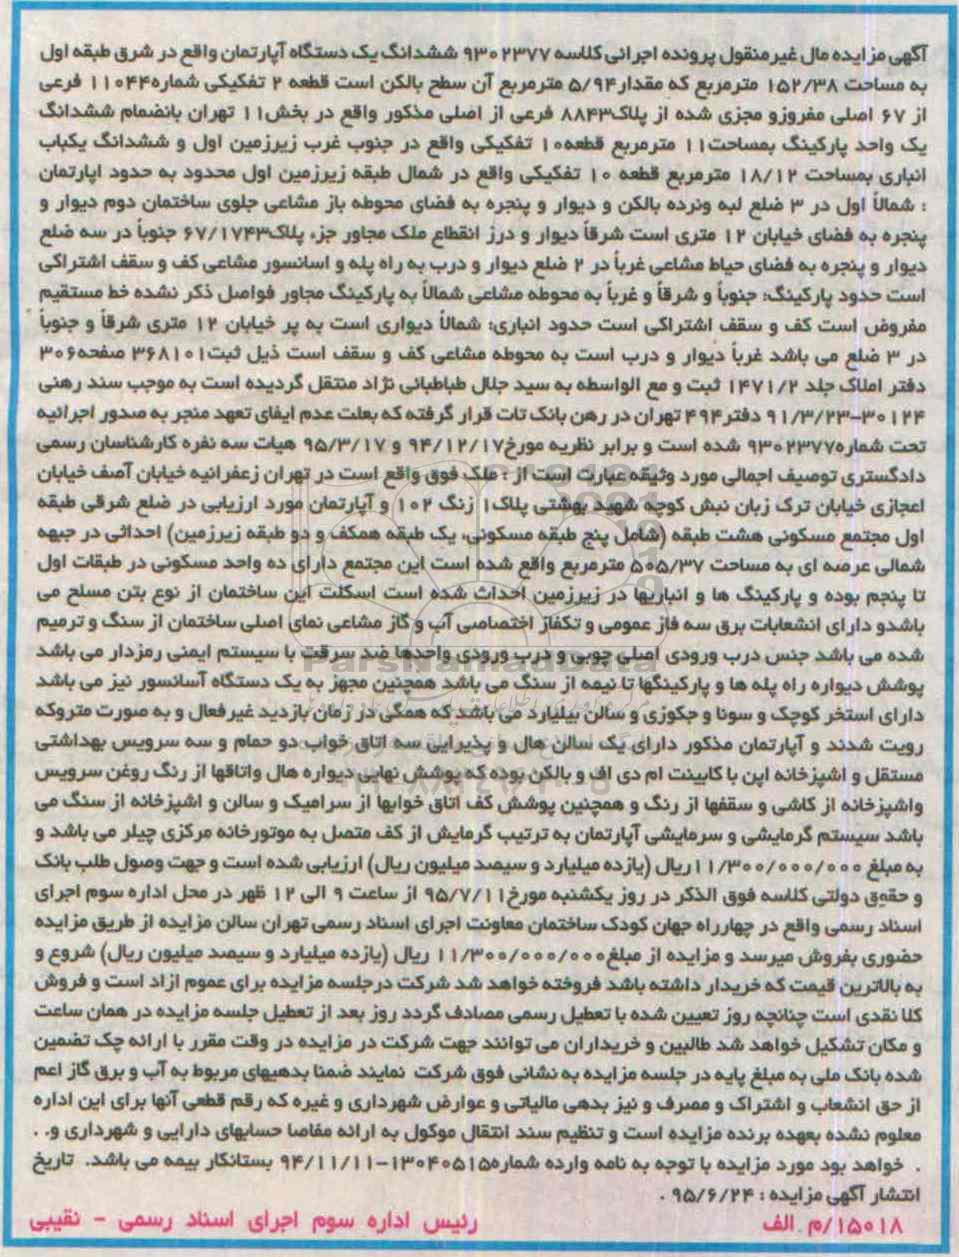 آگهی مزایده مال غیر منقول پرونده اجرائی کلاسه ۹۳۰۲۳۷۷ ششدانگ یک دستگاه آپارتمان واقع در شرق طبقه اول
به مساحت ۱۵۲/۳۸ مترمربع که مقدار ۵/۹۴ مترمربع آن سطح بالکن است قطعه ۲ تفکیکی شماره۱۱۰۴۴ فرعی
از ۶۷ اصلی مفروزو مجزی شده از پلاک۸۸۴۳ فرعی از اصلی مذکور واقع در بخش۱۱ تهران بانضمام ششدانگ
یک واحد پارکینگ بمساحت۱۱ مترمربع قطعه۱۰ تفکیکی واقع در جنوب غرب زیرزمین اول و ششدانگ یکباب
انباری بمساحت ۱۸/۱۲ مترمربع قطعه ۱۰ تفکیکی واقع در شمال طبقه زیرزمین اول محدود به حدود اپارتمان
: شمالاً اول در ۳ ضلع لبه ونرده بالکن و دیوار و پنجره به فضای محوطه باز مشاعی جلوی ساختمان دوم دیوار و
پنجره به فضای خیابان ۱۲ متری است شرقاً دیوار و درز انقطاع ملک مجاور جزء پلاک۶۷/۱۷۴۳ جنوباً در سه ضلع
دیوار و پنجره به فضای حیاط مشاعی غرباً در ۲ ضلع دیوار و درب به راه پله و اسانسور مشاعی کف و سقف اشتراکی
است حدود پارکینگ: جنوباً و شرقاً و غرباً به محوطه مشاعی شمالاً به پارکینگ مجاور فواصل ذکر نشده خط مستقیم
مفروض است کف و سقف اشتراکی است حدود انباری: شمالاً دیواری است به پر خیابان ۱۲ متری شرقاً و جنوباً
در ۳ ضلع می باشد غرباً دیوار و درب است به محوطه مشاعی کف و سقف است ذیل ثبت۳۶۸۱۰۱ صفحه۳۰۶
دفتر املاک جلد ۱۴۷۱/۲ ثبت و مع الواسطه به سید جلال طباطبائی نژاد منتقل گردیده است به موجب سند رهنی
۳۰۱۲۴-۹۱/۳/۲۳ دفتر۴۹۴ تهران در رهن بانک تات قرار گرفته که بعلت عدم ایفای تعهد منجر به صدور اجرائیه
تحت شماره۹۳۰۲۳۷۷ شده است و برابر نظریه مورخ۹۴/۱۲/۱۷ و ۹۵/۳/۱۷ هیات سه نفره کارشناسان رسمی
دادگستری توصیف اجمالی مورد وثیقه عبارت است از : ملک فوق واقع است در تهران زعفرانیه خیابان آصف خیابان
اعجازی خیابان ترک زبان نبش کوچه شهید بهشتی پلاک۱ زنگ ۱۰۲ و آپارتمان مورد ارزیابی در ضلع شرقی طبقه
اول مجتمع مسکونی هشت طبقه (شامل پنج طبقه مسکونی، یک طبقه همکف و دو طبقه زیرزمین) احداثی در جبهه
شمالی عرصه ای به مساحت ۵۰۵/۳۷ مترمربع واقع شده است این مجتمع دارای ده واحد مسکونی در طبقات اول
تا پنجم بوده و پارکینگ ها و انباریها در زیرزمین احداث شده است اسکلت این ساختمان از نوع بتن مسلح می
باشدو دارای انشعابات برق سه فاز عمومی و تکفاز اختصاصی آب و گاز مشاعی نمای اصلی ساختمان از سنگ و ترمیم
شده می باشد جنس درب ورودی اصلی چوبی و درب ورودی واحدها ضد سرقت با سیستم ایمنی رمزدار می باشد
پوشش دیواره راه پله ها و پارکینگها تا نیمه از سنگ می باشد همچنین مجهز به یک دستگاه آسانسور نیز می باشد
دارای استخر کوچک و سونا و جکوزی و سالن بیلیارد می باشد که همگی در زمان بازدید غیرفعال و به صورت متروکه
رویت شدند و آپارتمان مذکور دارای یک سالن هال و پذیرایی سه اتاق خواب دو حمام و سه سرویس بهداشتی
مستقل و اشپزخانه اپن با کابینت ام دی اف و بالکن بوده که پوشش نهایی دیواره هال واتاقها از رنگ روغن سرویس
واشپزخانه از کاشی و سقفها از رنگ و همچنین پوشش کف اتاق خوابها از سرامیک و سالن و اشپزخانه از سنگ می
باشد سیستم گرمایشی و سرمایشی آپارتمان به ترتیب گرمایش از کف متصل به موتورخانه مرکزی چیلر می باشد و
به مبلغ ۱۱/۳۰۰/۰۰۰/۰۰۰ریال (یازده میلیارد و سیصد میلیون ریال) ارزیابی شده است و جهت وصول طلب بانک
و حقوق دولتی کلاسه فوق الذکر در روز یکشنبه مورخ۹۵/۷/۱۱ از ساعت ۹ الی ۱۲ ظهر در محل اداره سوم اجرای
اسناد رسمی واقع در چهارراه جهان کودک ساختمان معاونت اجرای اسناد رسمی تهران سالن مزایده از طریق مزایده
حضوری بفروش میرسد و مزایده از مبلغ۱۱/۳۰۰/۰۰۰/۰۰۰ ریال (یازده میلیارد و سیصد میلیون ریال) شروع و
به بالاترین قیمت که خریدار داشته باشد فروخته خواهد شد شرکت درجلسه مزایده برای عموم ازاد است و فروش
کلا نقدی است چنانچه روز تعیین شده با تعطیل رسمی مصادف گردد روز بعد از تعطیل جلسه مزایده در همان ساعت
و مکان تشکیل خواهد شد طالبین و خریداران می توانند جهت شرکت در مزایده در وقت مقرر با ارائه چک تضمین
شده بانک ملی به مبلغ پایه در جلسه مزایده به نشانی فوق شرکت نمایند ضمنا بدهیهای مربوط به آب و برق گاز اعم
از حق انشعاب و اشتراک و مصرف و نیز بدهی مالیاتی و عوارض شهرداری و غیره که رقم قطعی آنها برای این اداره
معلوم نشده بعهده برنده مزایده است و تنظیم سند انتقال موکول به ارائه مفاصا حسابهای دارایی و شهرداری و. .
. خواهد بود مورد مزایده با توجه به نامه وارده شماره۱۳۰۴۰۵۱۵-۹۴/۱۱/۱۱ بستانکار بیمه می باشد. تاریخ
انتشار آگهی مزایده : ۹۵/۶/۲۴ .
۱۵۰۱۸/م الف رئیس اداره سوم اجرای اسناد رسمی - نقیبی